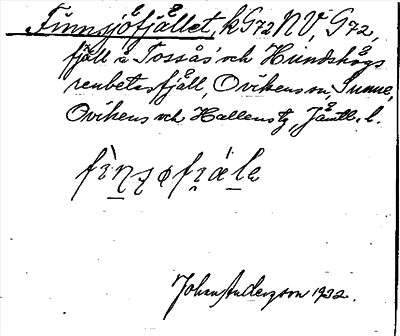 Finnsjöfjället, kG72NV, G72,
fjäll å Tossås' och Hundshögs
renbetesfjäll, Ovikens sn, Sunne,
Ovikens och Hallens tg, Jämtl. l.
Johan Anderzson 1932.